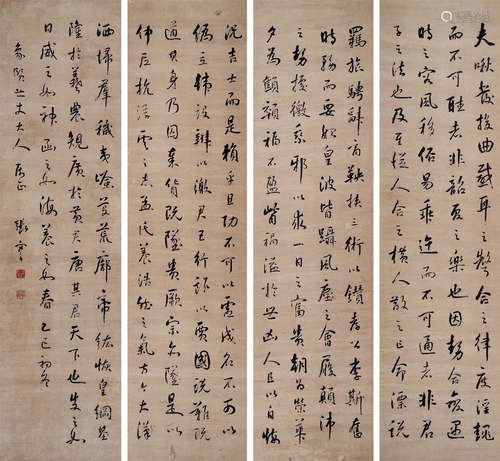 夫啾發投曲感耳之合之律度淫䵷
而不可聽者非韶夏之樂也因勢合變遇
時之容風移俗易乖迕而不可通者非君
子之法也及至從人合之橫人散之亡命漂說
羈旅騁辭商鞅挾三術以鑽孝公李斯奮
時務而要始皇彼皆躡風塵之會履顛沛
之勢據徼乘邪以求一日之富貴朝為榮華
夕為顦顇福不盈眥禍溢於世凶人且以自悔
況吉士而是賴乎且功不可以虛成名不可以
偽立韓設辨以激君呂行詐以賈國說難既
遒其身乃囚秦貨既墜貴厥宗亦墜是以
仲尼抗浮雲之志孟氏養浩然之氣方今大漢
洒埽羣穢夷險芟荒廓帝紘恢皇綱基
隆於羲農規廣於黃唐其君天下也炎之如
日威之如神函之如海養之如春乙巳初冬
象賢世丈大人屬正 張